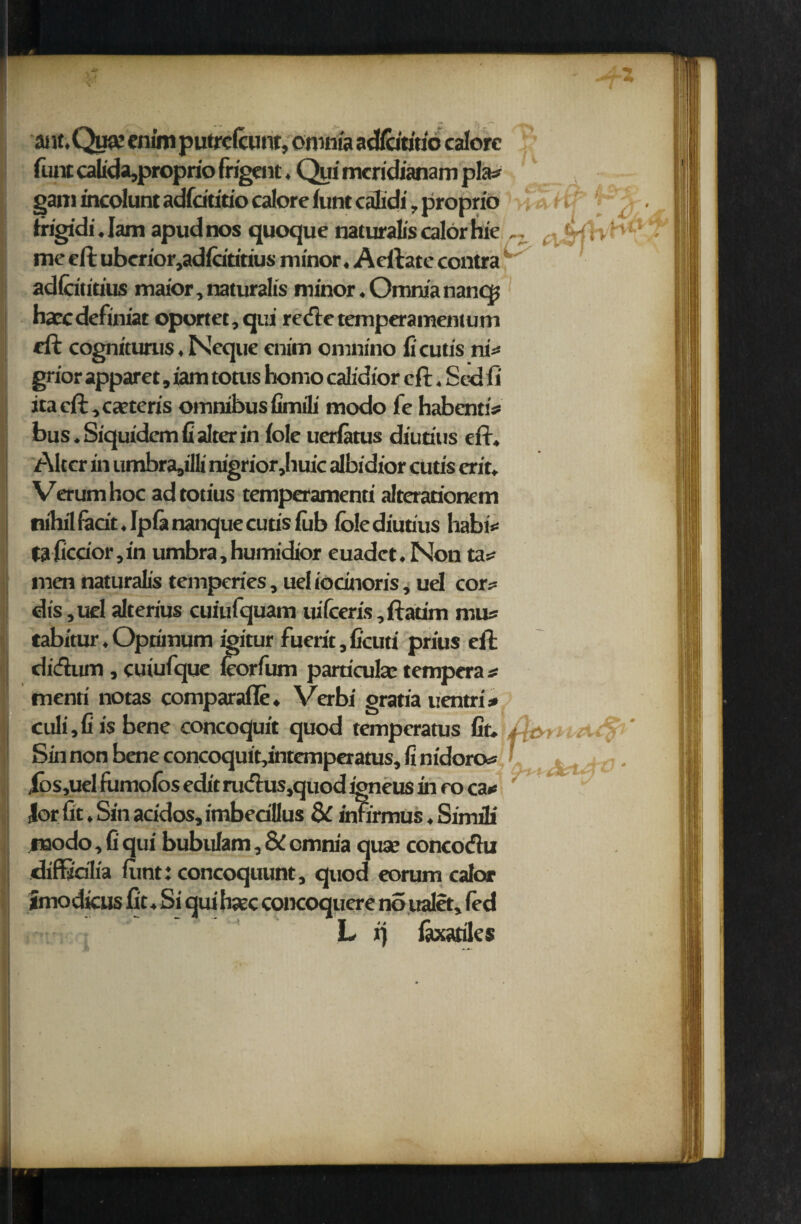 ant. Quæ enim putreſcunt, omnia adſcititio calore
ſunt calida, proprio frigent. Qui meridianam pla⸗
gam incolunt adſcititio calore ſunt calidi, proprio
frigidi. Iam apud nos quoque naturalis calor hie
me eſt uberior, adſcititius minor. Aeſtate contra
adſcititius maior, naturalis minor. Omnia nanqꝫ
hæc definiat oportet, qui recte temperamentum
eſt cogniturus. Neque enim omnino ſi cutis ni⸗
grior apparet, iam totus homo calidior eſt. Sed ſi
ita eſt, cæteris omnibus ſimili modo ſe habenti⸗
bus. Siquidem ſi alter in ſole uerſatus diutius eſt.
Alter in umbra, illi nigrior, huic albidior cutis erit.
Verum hoc ad totius temperamenti alterationem
nihil facit. Ipſa nanque cutis ſub ſole diutius habi⸗
ta ſiccior, in umbra, humidior euadet. Non ta⸗
men naturalis temperies, uel iocinoris, uel cor⸗
dis, uel alterius cuiuſquam uiſceris, ſtatim mu⸗
tabitur. Optimum igitur fuerit, ſicuti prius eſt
dictum, cuiuſque ſeorſum particulæ tempera⸗
menti notas comparaſſe. Verbi gratia uentri⸗
culi, ſi is bene concoquit quod temperatus ſit.
Sin non bene concoquit, intemperatus, ſi nidoro⸗
ſos, uel fumoſos edit ructus, quod igneus in eo ca⸗
lor ſit. Sin acidos, imbecillus & infirmus. Simili
modo, ſi qui bubulam, & omnia quæ concoctu
difficilia ſunt: concoquunt, quod eorum calor
imodicus ſit. Si qui hæc concoquere nõ ualēt, ſed
L ij ſaxatiles